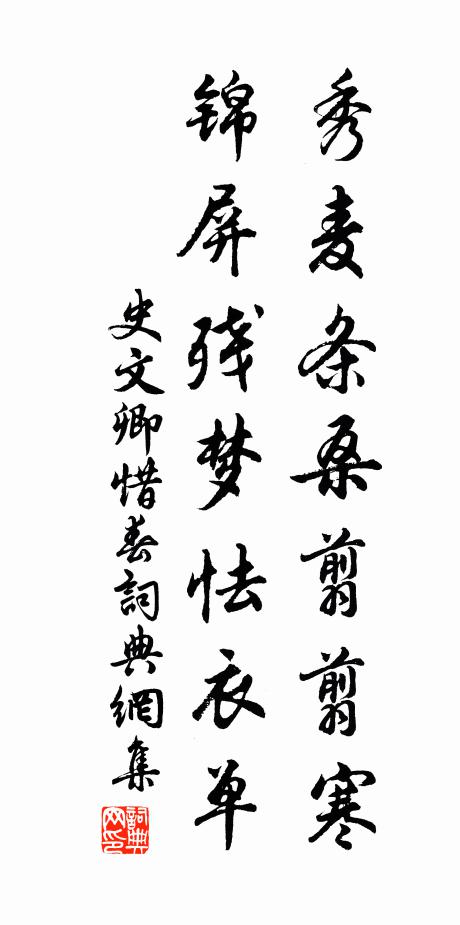 秀麦条桑翦翦寒
锦屏残梦怯衣单
史文卿惜春詞典網集
詞典网印